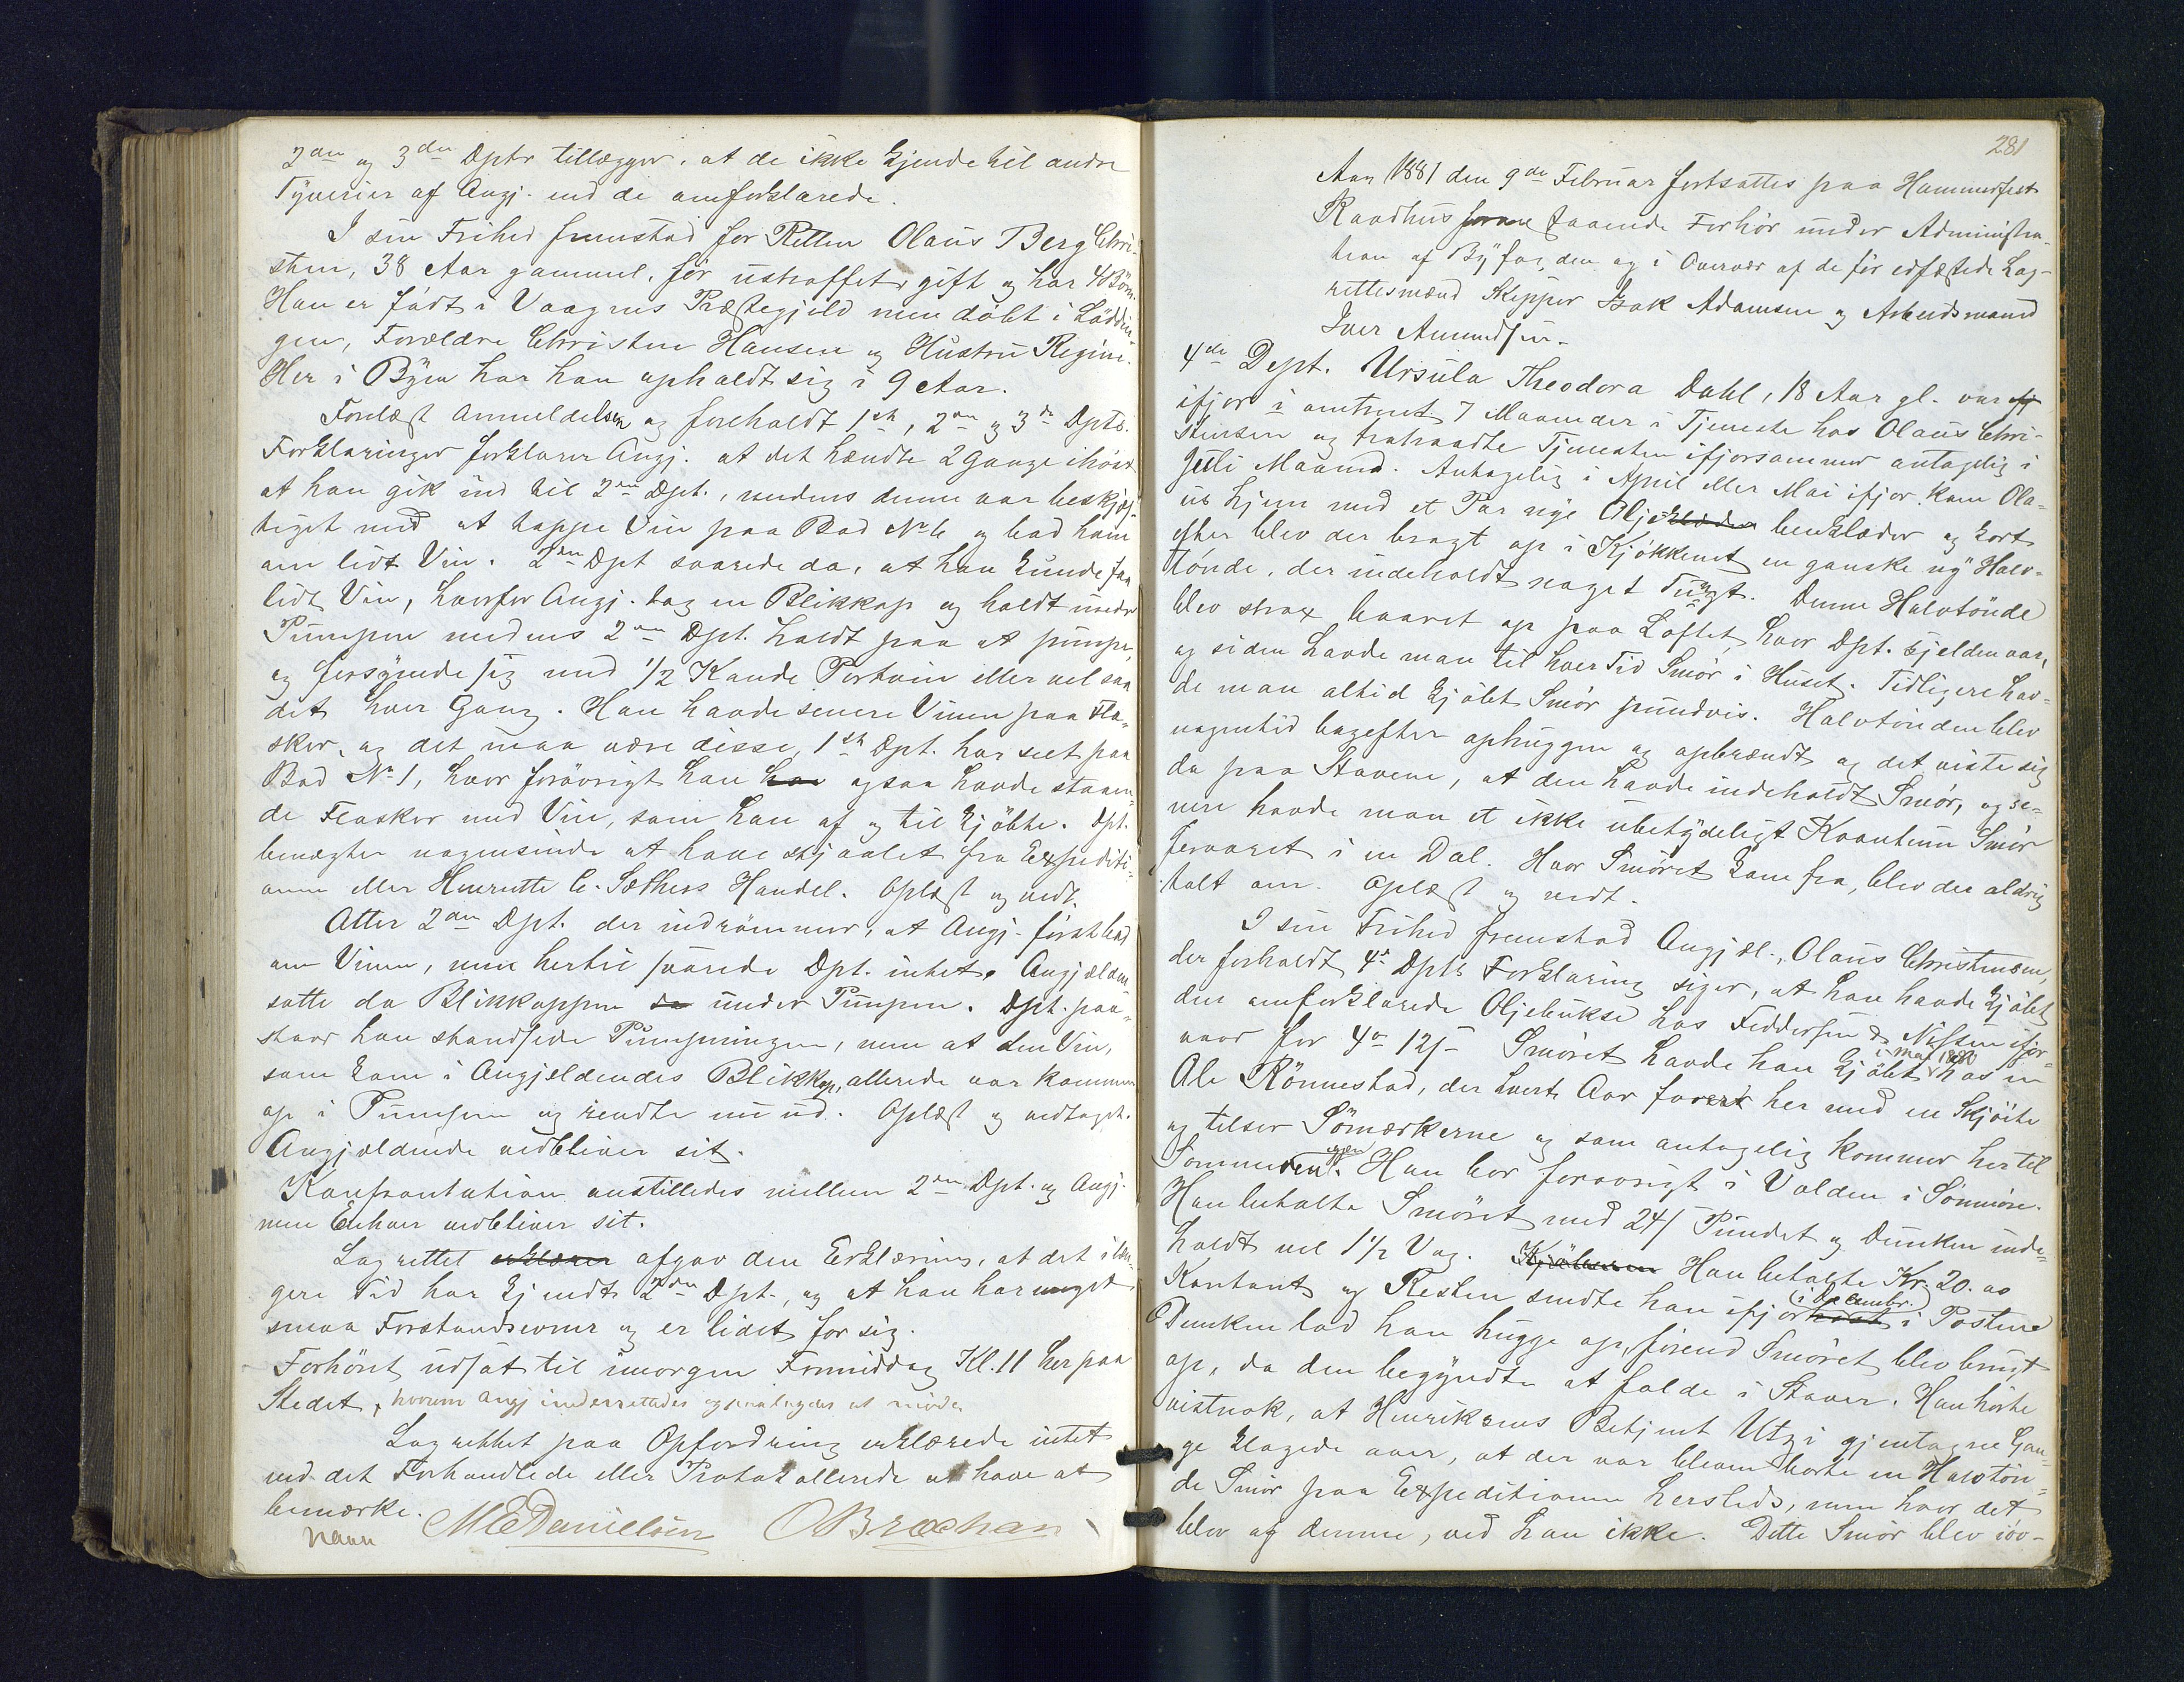 2den og 3die Dptr tillægger, at de ikke kjende til andre
Tyverier af Angj. end de omforklarede.
I sin Frihed fremstod for Retten Olaus Berg Chri-
stens, 38 Aar gammel, før ustraffet, gift og har 4 Børn.
Han er født i Vaagens Præstegjeld men døbt i Löddin-
gen, Forældre Christen Hansen og Hustru Regine.
Her i Byen har han opholdt sig i 9 Aar.
Forelæst Anmeldelsen og foreholdt 1ste, 2den og 3die Dpts.
Forklaringer forklarer Angj. at det hændte 2 Gange ihöst
at han gik ind til 2den Dpt., medens denne var beskjæf-
tiget med at tappe Vin paa Bod No 6 og bad ham
om lidt Vin. 2den Dpt svarede da, at han kunde faa
lidt Vin, hvorfor Angj. tog en Blikkop og holdt under
Pumpen medens 2den Dpt. holdt paa at pumpe,
og forsynede sig med 1/2 Kande Portvin eller vel saa
det hver Gang. Han havde senere Vinen paa Fla-
sker, og det maa være disse, 1ste Dpt. har seet paa
Bod No 1, hvor forøvrigt han har ogsaa havde staaen-
de Flasker med Vin, som han af og til kjöbte. Dpt.
benægter nogensinde at have stjaalet fra Expediti-
onen eller Henriette C. Sæthers Handel. Oplæst og vedt.
Atter 2den Dpt. der indrømmer, at Angj. først bad
om Vinen, men hertil svarede Dpt. intet. Angjældende
satte da Blikkoppen da under Pumpen. Dpt. paa-
staar han standsede Pumpningen, men at den Vin,
som kom i Angjældendes Blikkop, allerede var kommen
op i Pumpen og rendte nu ud. Oplæst og vedtaget.
Angjældende vedbliver sit.
Konfrontation anstilledes mellem 2den Dpt. og Angj.
men Enhver vedbliver sit.
Lagrettet erklærer afgav den Erklæring, at det i læn-
gere Tid har kjendt 2den Dpt., og at han har meget
smaa Forstandsevner og er lidet for sig.
Forhöret udsat til imorgen Formiddag Kl. 11 her paa
Stedet, hvorom Angj underrettedes og paalagdes at møde
Lagrettet paa Opfordring erklærede intet
ved det Forhandlede eller Protokollerede at have at
bemærke.
Navn M E Danielsen O Brochan
281
Aar 1881 den 9de Februar fortsattes paa Hammerfest
Raadhus foran staaende Forhör under Administra-
tion af Byfogden og i Overvær af de för edfæstede Lag-
rettesmænd Skipper Isak Adamsen og Arbeidsmand
Iver Amundsen.
4de Dept. Ursula Theodora Dahl, 18 Aar gl. var ifj
ifjor i omtrent 7 Maaneder i Tjeneste hos Olaus Chri-
stensen og fratraadte Tjenesten ifjorsommer antagelig i
Juli Maaned. Antagelig i April eller Mai ifjor kom Ola-
us hjem med et Par nye Oljeklæder benklæder og kort
efter blev der bragt op i Kjökkenet en ganske ny Halv-
tönde, der indeholdt noget Tungt. Denne Halvtönde
blev strax baaret op paa Loftet, hvor Dpt. sjelden var,
og siden havde man til hver Tid Smör i Huset. Tidligere hav-
de man altid kjöbt Smör pundvis. Halvtönden blev
nogentid bagefter ophuggen og opbrændt og det viste sig
da paa Stavene, at den havde indeholdt Smör, og se-
nere havde man et ikke ubetydeligt Kvantum Smör
forvaret i en Dal. Hvor Smöret kom fra, blev der aldrig
talt om. Oplæst og vedt.
I sin Frihed fremstod Angjæl., Olaus Christensen,
der forholdt 4de Dpts Forklaring siger, at han havde kjöbt
den omforklarede Oljebukse hos Feddersen & Nissen ifjor-
vaar for 4 12ſ. Smöret havde han kjöbt i Mai 1880 hos en
Ole Rönnestad, der hvert Aar farer her med en Skjöite
og tilser Sömærkerne og som antagelig kommer hertil
Sommeren igjen. Han bor forøvrigt i Volden i Sönmöre.
Han betalte Smöret med 24ſ Pundet og Dunken inde-
holdt vel 1 1/2 Vog. Kjöberen Han betalte Kr. 20.00
Kontant og Resten sendte han ifjorhöst i Decembr. i Posten.
Dunken lod han hugge op, forend Smöret blev brugt
op, da den begyndte at falde i Staver. Han hörte
vistnok, at Henriksens Betjent Utzi gjentagne Gan-
ge klagede over, at der var bleven borte en Halvtön-
de Smör paa Expeditionen herstede, men hvor det
blev af denne, ved han ikke. Dette Smör blev iöv-